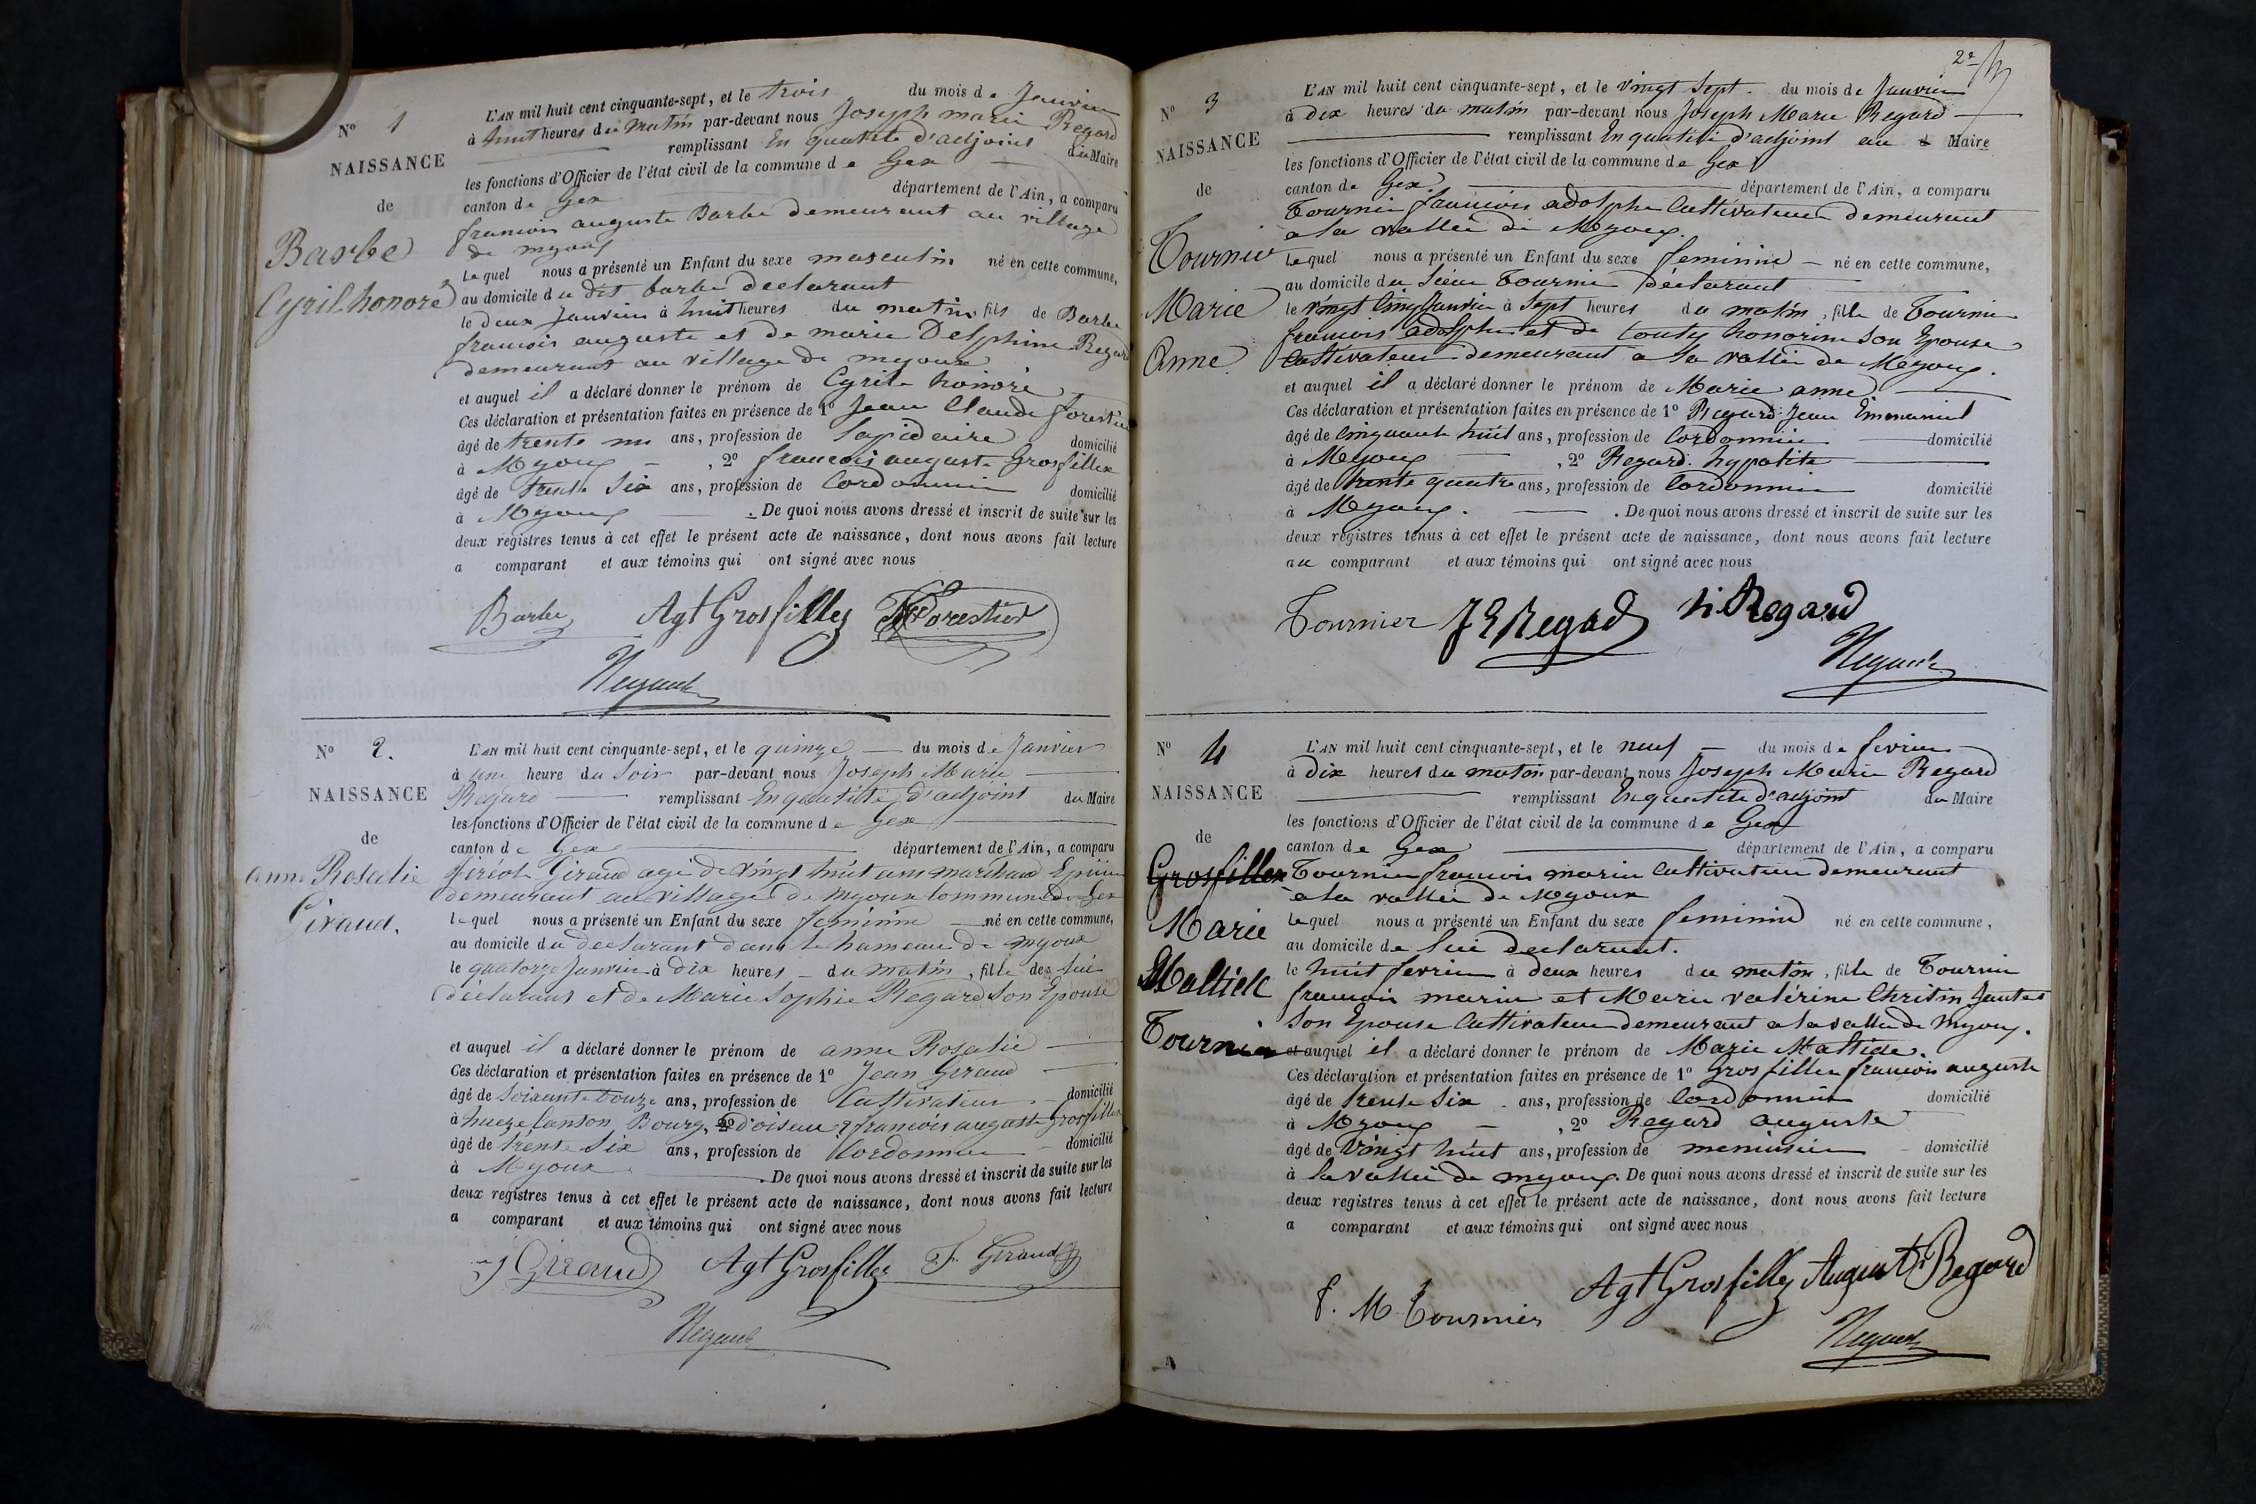 N° 1
NAISSANCE
de
Barbe
Cyril honoré
L'AN mil huit cent cinquante-sept, et le trois du mois de Janvier
à huit heures du matin par-devant nous Joseph marie Regard
remplissant En qualité d'adjoint du Maire
les fonctions d'Officier de l'état civil de la commune de Gex
canton de Gex département de l'Ain, a comparu
francois auguste Barbe demeurant au village
de myoux
Lequel nous a présenté un Enfant du sexe masculin né en cette commune,
au domicile du dit barbe declarant
le deux Janvier à huit heures du matin fils de Barbe
francois auguste et de marie Delphine Regard
demeurant au village de myoux
et auquel il a déclaré donner le prénom de Cyrile honoré
Ces déclaration et présentation faites en présence de 1° Jean Claude forestier
âgé de trente ans, profession de lapidaire domicilié
à Myoux , 2° francois auguste Grosfillex
âgé de trente Six ans, profession de Cordonnier domicilié
à Myoux . De quoi nous avons dressé et inscrit de suite sur les
deux registres tenus à cet effet le présent acte de naissance, dont nous avons fait lecture
a comparant et aux témoins qui ont signé avec nous
Barbe Agt Grosfillex Forestier
Regard
N° 2.
NAISSANCE
de
anne Rosalie
Giraud.
L'AN mil huit cent cinquante-sept, et le quinze du mois de Janvier
à une heure du Soir par-devant nous Joseph Marie
Regard remplissant En qualité d'adjoint du Maire
les fonctions d'Officier de l'état civil de la commune de Gex
canton de Gex département de l'Ain, a comparu
firéol Giraud agé de vingt huit ans marchand Epicier
demeurant au village de myoux commune de Gex
lequel nous a présenté un Enfant du sexe feminin né en cette commune,
au domicile du declarant dans le hameau de myoux
le quatorze Janvier à dix heures du matin, fille de lui
declarant et de Marie Sophie Regard Son Epouse
et auquel il a déclaré donner le prénom de anne Rosalie
Ces déclaration et présentation faites en présence de 1° Jean Giraud
âgé de Soixante douze ans, profession de Cultivateur domicilié
à hueze Canton Bourg d'oiseau 2° francois auguste Grosfillex
âgé de trente Six ans, profession de Cordonnier domicilié
à Myoux . De quoi nous avons dressé et inscrit de suite sur les
deux registres tenus à cet effet le présent acte de naissance, dont nous avons fait lecture
a comparant et aux témoins qui ont signé avec nous
j Giraud Agt Grosfillex F. Giraud
Regard
2e
N° 3
NAISSANCE
de
Tournier
Marie
Anne
L'AN mil huit cent cinquante-sept, et le vingt Sept du mois de Janvier
à dix heures du matin par-devant nous Joseph Marie Regard
remplissant En qualité d'adjoint au Maire
les fonctions d'Officier de l'état civil de la commune de Gex
canton de Gex département de l'Ain, a comparu
Tournier francois adolphe Cultivateur demeurant
a la vallée de Myoux.
Lequel nous a présenté un Enfant du sexe feminin né en cette commune,
au domicile du Sieur Tournier déclarant
le vingt Cinq Janvier à Sept heures du matin, fille de Tournier
francois adolphe et de touty honorine Son Epouse
Cultivateur demeurant a la vallée de Myoux.
et auquel il a déclaré donner le prénom de Marie anne
Ces déclaration et présentation faites en présence de 1° Regard Jean Emmanuel
âgé de Cinquante huit ans, profession de Cordonnier domicilié
à Myoux , 2° Regard hypolite
âgé de trente quatre ans, profession de Cordonnier domicilié
à Myoux. . De quoi nous avons dressé et inscrit de suite sur les
deux registres tenus à cet effet le présent acte de naissance, dont nous avons fait lecture
au comparant et aux témoins qui ont signé avec nous
Tournier J E Regad h Regard
Regard
N° 4
NAISSANCE
de
Grosfillex
Marie
Maltide
Tournier
L'AN mil huit cent cinquante-sept, et le neuf du mois de fevrier
à dix heures du matin par-devant nous Joseph Marie Regard
remplissant En qualité d'adjoint du Maire
les fonctions d'Officier de l'état civil de la commune de Gex
canton de Gex département de l'Ain, a comparu
Tournier francois marin Cultivateur demeurant
a la vallée de Myoux
Lequel nous a présenté un Enfant du sexe feminin né en cette commune,
au domicile de lui declarant.
le huit fevrier à deux heures du matin, fille de Tournier
francois marin et Marie valérine Christin
Son Epouse Cultivateur demeurant a la vallée de myoux.
et auquel il a déclaré donner le prénom de Marie Maltide.
Ces déclaration et présentation faites en présence de 1° Grosfillex francois auguste
âgé de trente Six ans, profession de Cordonnier domicilié
à Myoux , 2° Regard auguste
âgé de vingt huit ans, profession de menuisier domicilié
à la vallée de myoux. De quoi nous avons dressé et inscrit de suite sur les
deux registres tenus à cet effet le présent acte de naissance, dont nous avons fait lecture
a comparant et aux témoins qui ont signé avec nous
F. M. Tournier Agt Grosfillex August Regard
Regard